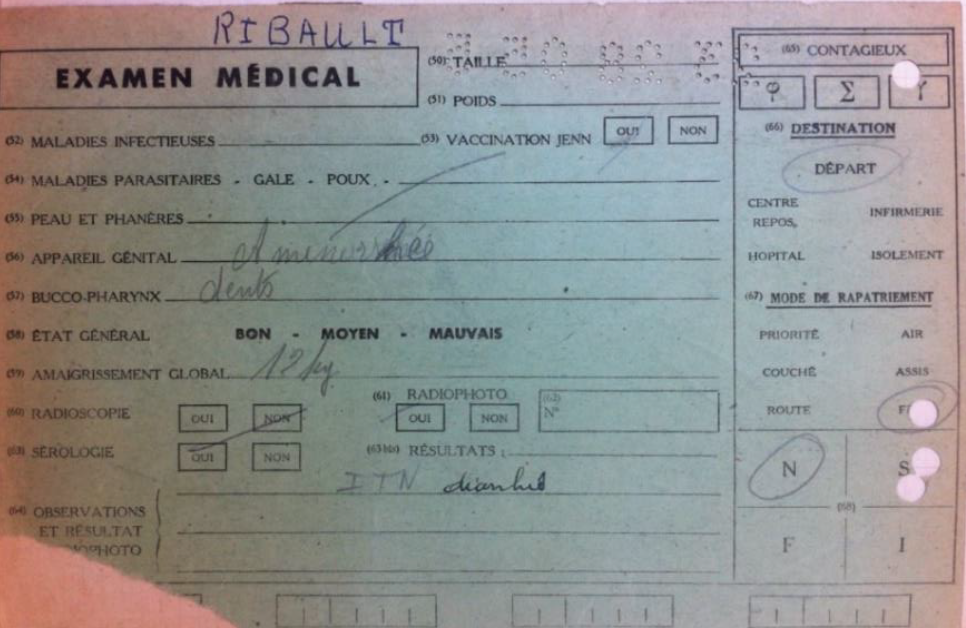 RIBAULT
EXAMEN MÉDICAL
(50) TAILLE
(51) POIDS
(52) MALADIES INFECTIEUSES
(53) VACCINATION JENN OUI NON
(54) MALADIES PARASITAIRES - GALE - POUX -
(55) PEAU ET PHANÈRES
(56) APPAREIL GÉNITAL Amenorrhée
(57) BUCCO-PHARYNX dents
(58) ÉTAT GÉNÉRAL BON - MOYEN - MAUVAIS
(59) AMAIGRISSEMENT GLOBAL 12 kg
(60) RADIOSCOPIE OUI NON
(61) RADIOPHOTO OUI NON
(62) N°
(63) SÉROLOGIE OUI NON
(63 bis) RÉSULTATS :
(64) OBSERVATIONS
ET RÉSULTAT
(65) CONTAGIEUX
φ Σ γ
(66) DESTINATION
DÉPART
CENTRE REPOS, INFIRMERIE
HOPITAL ISOLEMENT
(67) MODE DE RAPATRIEMENT
PRIORITÉ AIR
COUCHÉ ASSIS
ROUTE
N S
(68)
F I